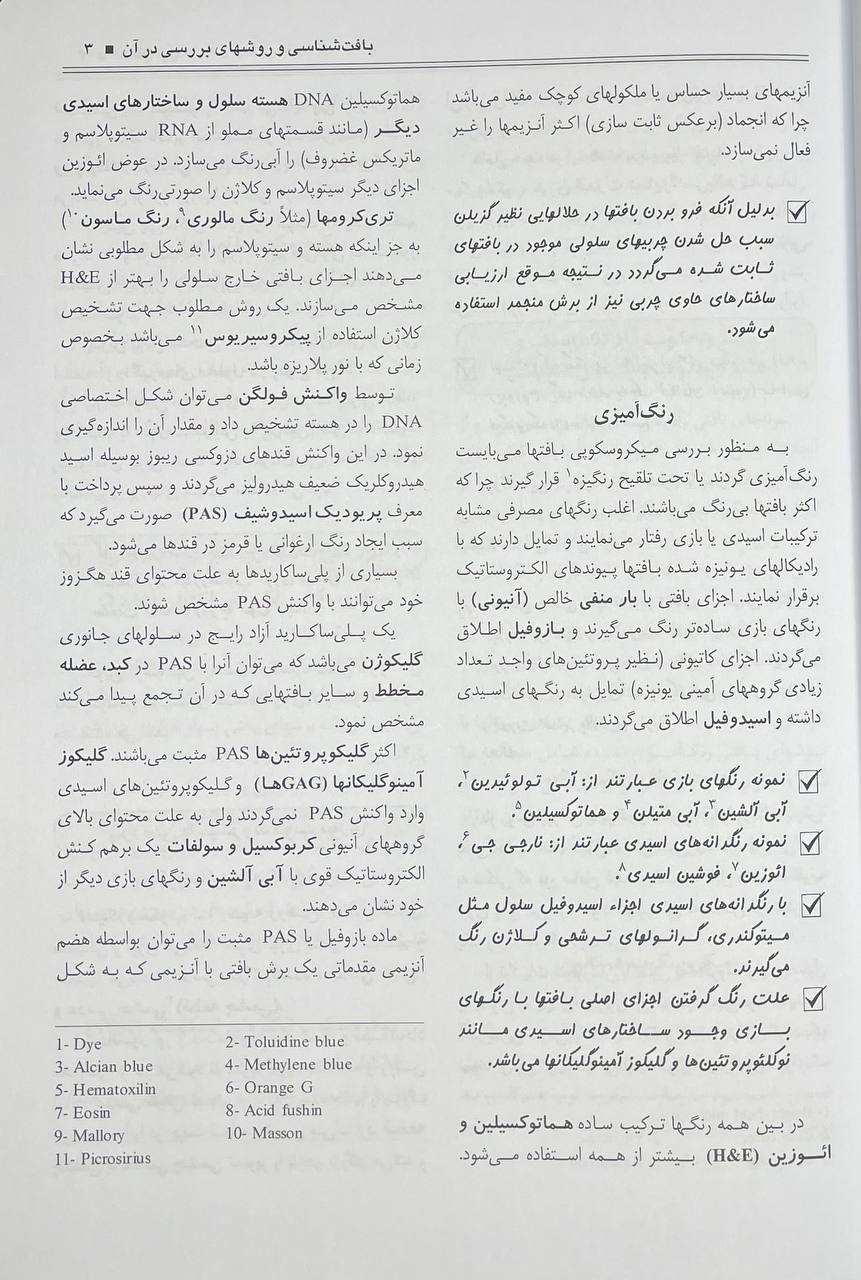 بافت‌شناسی و روشهای بررسی در آن ■ ۳
آنزیمهای بسیار حساس یا ملکولهای کوچک مفید می‌باشد
چرا که انجماد (برعکس ثابت سازی) اکثر آنزیمها را غیر
فعال نمی‌سازد.
☑ بدلیل آنکه فرو بردن بافتها در حلالهایی نظیر گزیلن
سبب حل شدن چربیهای سلولی موجود در بافتهای
ثابت شده می‌گردد در نتیجه موقع ارزیابی
ساختارهای حاوی چربی نیز از برش منجمد استفاده
می‌شود.
رنگ‌آمیزی
به منظور بررسی میکروسکوپی بافتها می‌بایست
رنگ‌آمیزی گردند یا تحت تلقیح رنگیزه۱ قرار گیرند چرا که
اکثر بافتها بی‌رنگ می‌باشند. اغلب رنگهای مصرفی مشابه
ترکیبات اسیدی یا بازی رفتار می‌نمایند و تمایل دارند که با
رادیکالهای یونیزه شده بافتها پیوندهای الکتروستاتیک
برقرار نمایند. اجزای بافتی با بار منفی خالص (آنیونی) با
رنگهای بازی ساده‌تر رنگ می‌گیرند و بازوفیل اطلاق
می‌گردند. اجزای کاتیونی (نظیر پروتئین‌های واجد تعداد
زیادی گروههای آمینی یونیزه) تمایل به رنگهای اسیدی
داشته و اسیدوفیل اطلاق می‌گردند.
☑ نمونه رنگهای بازی عبارتند از: آبی تولوئیدین۲،
آبی آلشین۳، آبی متیلن۴ و هماتوکسیلین۵.
☑ نمونه رنگدانه‌های اسیدی عبارتند از: نارجی جی۶،
ائوزین۷، فوشین اسیدی۸.
☑ با رنگدانه‌های اسیدی اجزاء اسیدوفیل سلول مثل
میتوکندری، گرانولهای ترشحی و کلاژن رنگ
می‌گیرند.
☑ علت رنگ گرفتن اجزای اصلی بافتها با رنگهای
بازی وجود ساختارهای اسیدی مانند
نوکلئوپروتئین‌ها و گلیکوز آمینوگلیکانها می‌باشد.
در بین همه رنگها ترکیب ساده هماتوکسیلین و
ائوزین (H&E) بیشتر از همه استفاده می‌شود.
هماتوکسیلین DNA هسته سلول و ساختارهای اسیدی
دیگر (مانند قسمتهای مملو از RNA سیتوپلاسم و
ماتریکس غضروف) را آبی‌رنگ می‌سازد. در عوض ائوزین
اجزای دیگر سیتوپلاسم و کلاژن را صورتی‌رنگ می‌نماید.
تری‌کرومها (مثلاً رنگ مالوری۹، رنگ ماسون۱۰)
به جز اینکه هسته و سیتوپلاسم را به شکل مطلوبی نشان
می‌دهند اجزای بافتی خارج سلولی را بهتر از H&E
مشخص می‌سازند. یک روش مطلوب جهت تشخیص
کلاژن استفاده از پیکروسیریوس۱۱ می‌باشد بخصوص
زمانی که با نور پلاریزه باشد.
توسط واکنش فولگن می‌توان شکل اختصاصی
DNA را در هسته تشخیص داد و مقدار آن را اندازه‌گیری
نمود. در این واکنش قندهای دزوکسی ریبوز بوسیله اسید
هیدروکلریک ضعیف هیدرولیز می‌گردند و سپس پرداخت با
معرف پریودیک اسیدوشیف (PAS) صورت می‌گیرد که
سبب ایجاد رنگ ارغوانی یا قرمز در قندها می‌شود.
بسیاری از پلی‌ساکاریدها به علت محتوای قند هگزوز
خود می‌توانند با واکنش PAS مشخص شوند.
یک پلی‌ساکارید آزاد رایج در سلولهای جانوری
گلیکوژن می‌باشد که می‌توان آنرا با PAS در کبد، عضله
مخطط و سایر بافتهایی که در آن تجمع پیدا می‌کند
مشخص نمود.
اکثر گلیکوپروتئین‌ها PAS مثبت می‌باشند. گلیکوز
آمینوگلیکانها (GAGها) و گلیکوپروتئین‌های اسیدی
وارد واکنش PAS نمی‌گردند ولی به علت محتوای بالای
گروههای آنیونی کربوکسیل و سولفات یک برهم کنش
الکتروستاتیک قوی با آبی آلشین و رنگهای بازی دیگر از
خود نشان می‌دهند.
ماده بازوفیل یا PAS مثبت را می‌توان بواسطه هضم
آنزیمی مقدماتی یک برش بافتی با آنزیمی که به شکل
1- Dye 2- Toluidine blue
3- Alcian blue 4- Methylene blue
5- Hematoxilin 6- Orange G
7- Eosin 8- Acid fushin
9- Mallory 10- Masson
11- Picrosirius